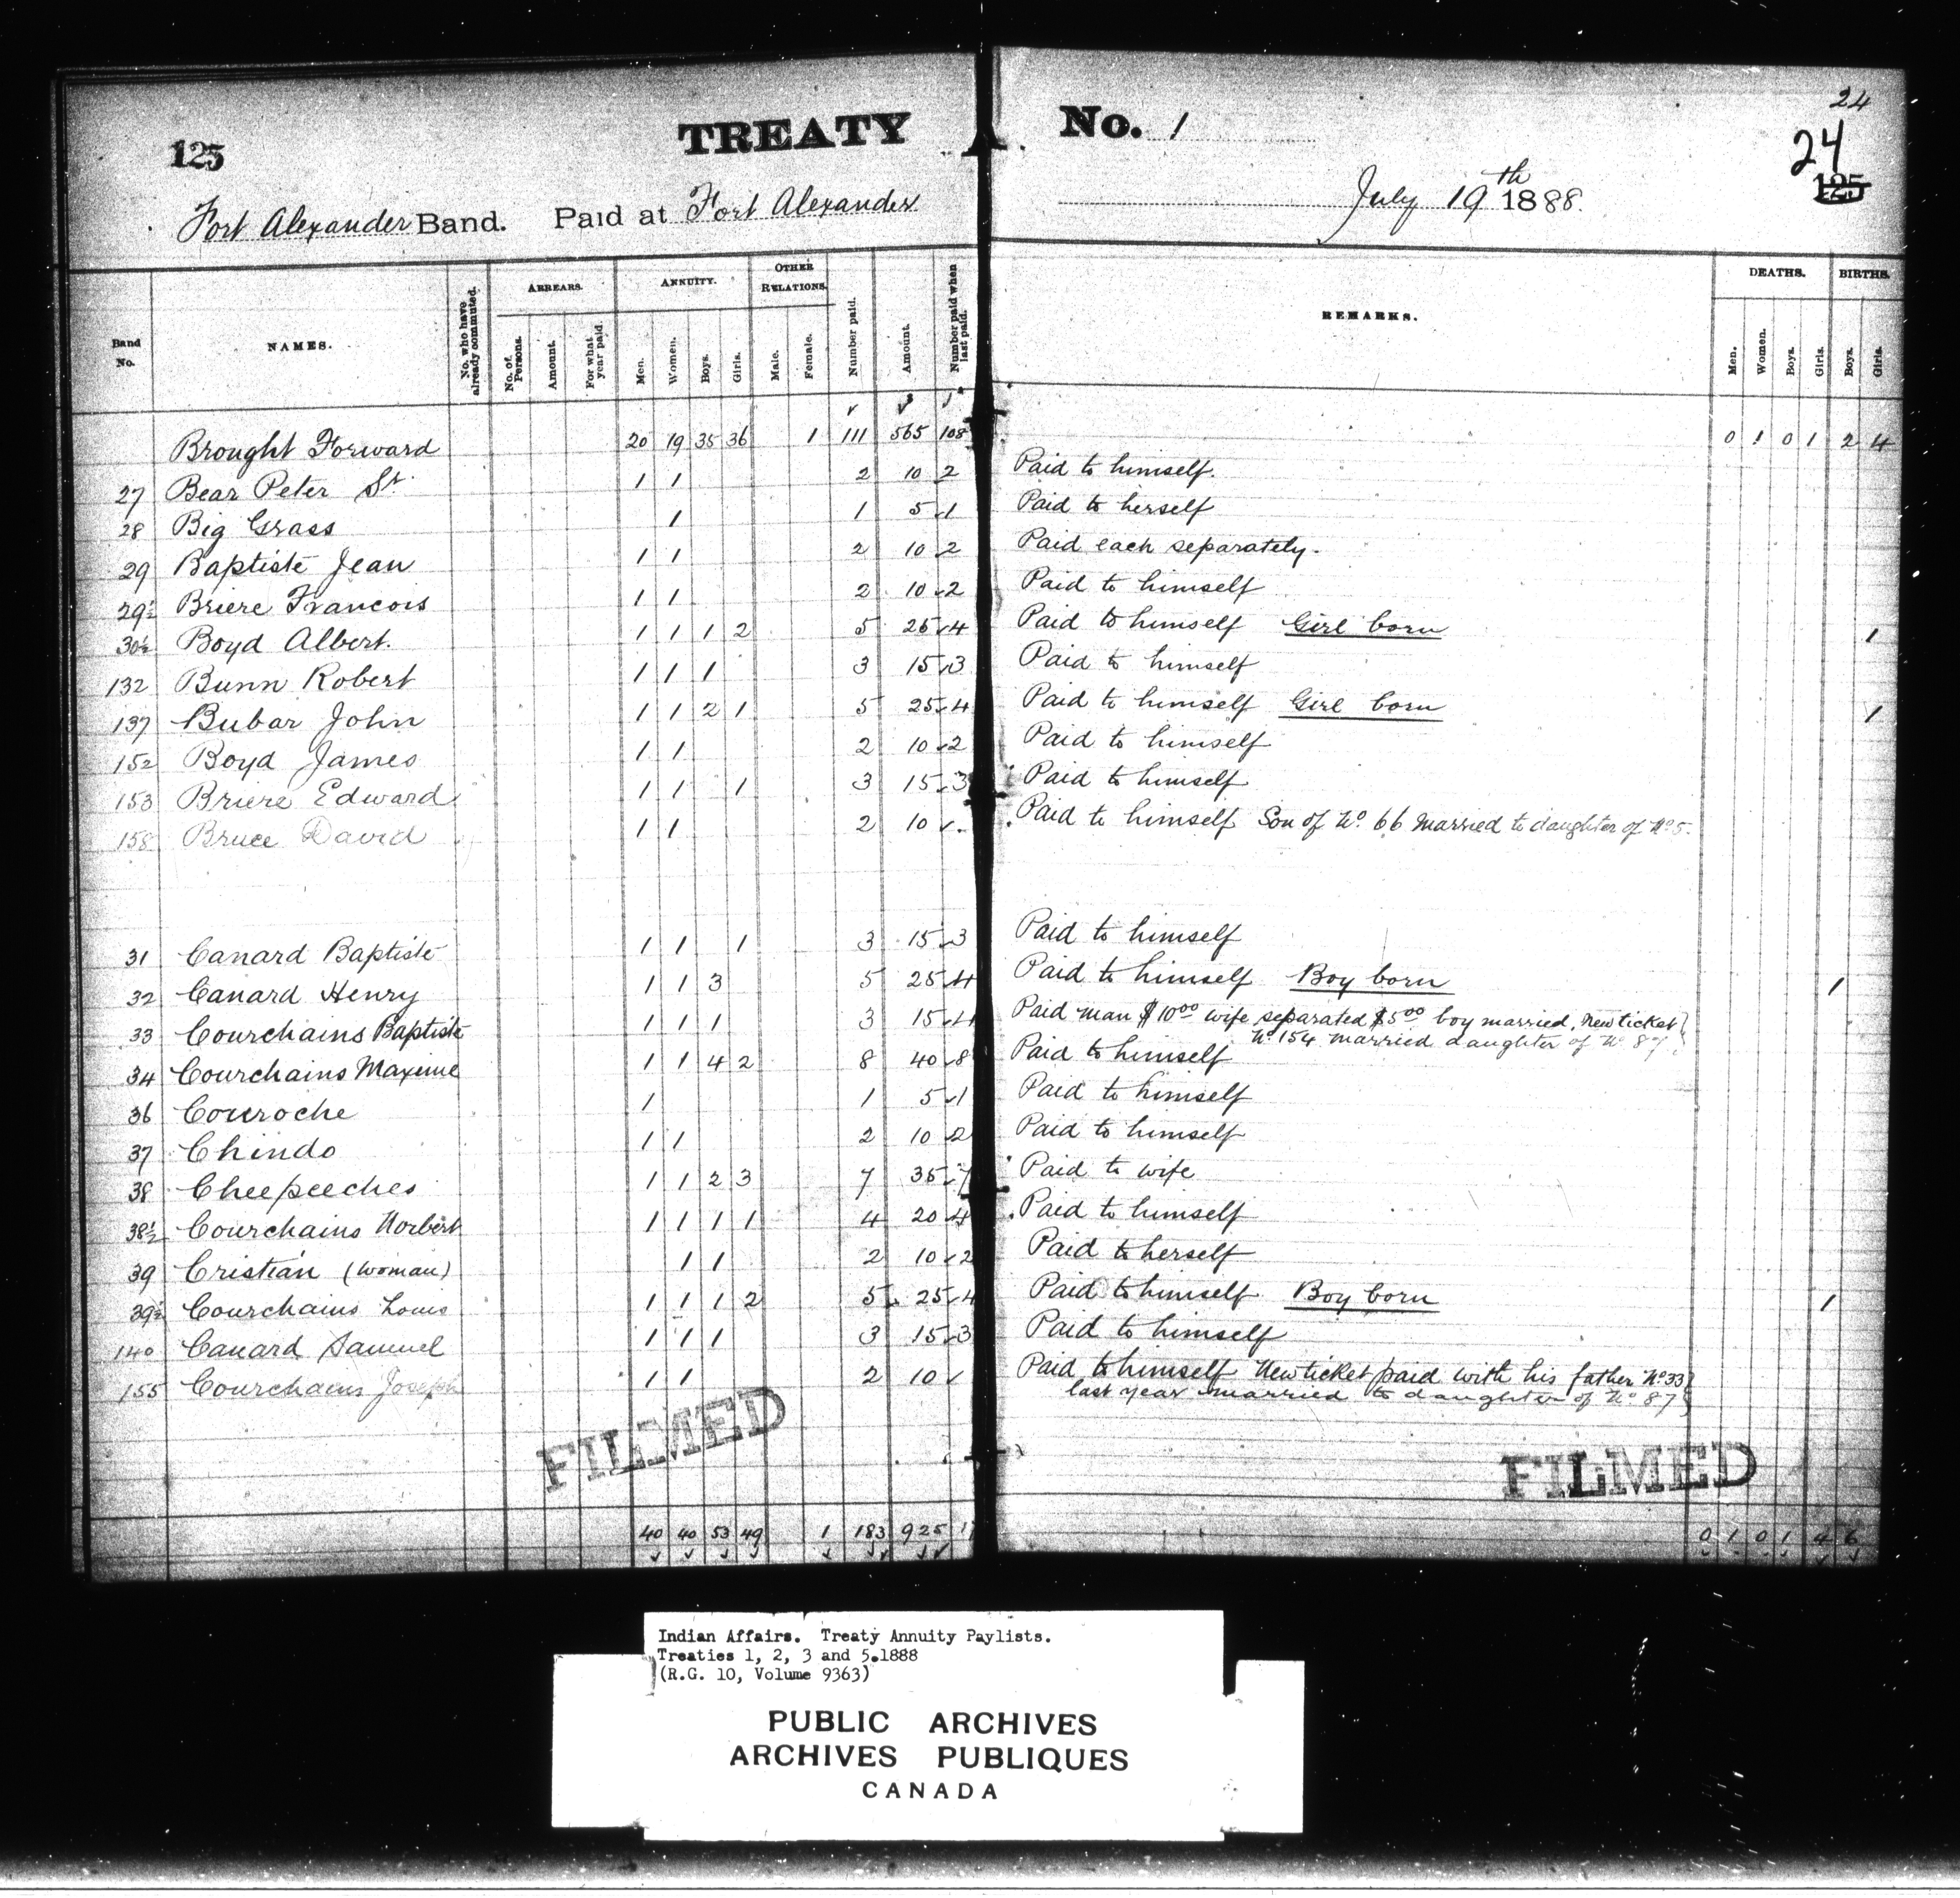 24
TREATY No. 1
125
24
125
Fort Alexander Band. Paid at Fort Alexander July 19th 1888.
Band No. NAMES. No. who have already commuted. ARREARS. No. of Persons. Amount. For what year paid. ANNUITY. Men. Women. Boys. Girls. OTHER RELATIONS. Male. Female. Number paid. Amount. Number paid when last paid. REMARKS. DEATHS. Men. Women. Boys. Girls. BIRTHS. Boys. Girls.
Brought Forward 20 19 35 36 1 111 565 108 0 1 0 1 2 4
27 Bear Peter Sr. 1 1 2 10 2 Paid to himself.
28 Big Grass 1 1 5 1 Paid to herself
29 Baptiste Jean 1 1 2 10 2 Paid each separately.
29½ Briere Francois 1 1 2 10 2 Paid to himself
30½ Boyd Albert. 1 1 1 2 5 25 4 Paid to himself Girl born 1
132 Bunn Robert 1 1 1 3 15 3 Paid to himself
137 Bubar John 1 1 2 1 5 25 4 Paid to himself Girl born 1
152 Boyd James 1 1 2 10 2 Paid to himself
153 Briere Edward 1 1 1 3 15 3 Paid to himself
158 Bruce David 1 1 2 10 Paid to himself Son of No. 66 Married to daughter of No 5.
31 Canard Baptiste 1 1 1 3 15 3 Paid to himself
32 Canard Henry 1 1 3 5 25 4 Paid to himself Boy born 1
33 Courchains Baptiste 1 1 1 3 15 4 Paid man $10.00 wife separated $5.00 boy married, New ticket
No 154 married daughter of No 87
34 Courchains Maxime 1 1 4 2 8 40 8 Paid to himself
36 Couroche 1 1 5 1 Paid to himself
37 Chindo 1 1 2 10 2 Paid to himself
38 Cheepeeches 1 1 2 3 7 35 7 Paid to wife
38½ Courchains Norbert 1 1 1 1 4 20 4 Paid to himself
39 Cristian (Woman) 1 1 2 10 2 Paid to herself
39½ Courchains Louis 1 1 1 2 5 25 4 Paid to himself Boy born 1
140 Canard Samuel 1 1 1 3 15 3 Paid to himself
155 Courchains Joseph 1 1 2 10 Paid to himself New ticket paid with his father No 33
last year married to daughter of No 87
FILMED
FILMED
40 40 53 49 1 183 925 0 1 0 1 4 6
Indian Affairs. Treaty Annuity Paylists.
Treaties 1, 2, 3 and 5.1888
(R.G. 10, Volume 9363)
PUBLIC ARCHIVES
ARCHIVES PUBLIQUES
CANADA